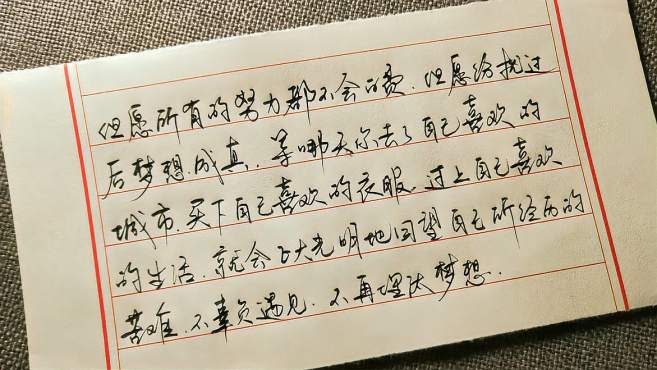 但愿所有的努力都不会白费.但愿给扰过
后梦想成真.等哪天你去了自己喜欢的
城市.买下自己喜欢的衣服.过上自己喜欢
的生活.就会正大光明地回望自己所经历的
苦难.不辜负遇见.不再埋汰梦想.